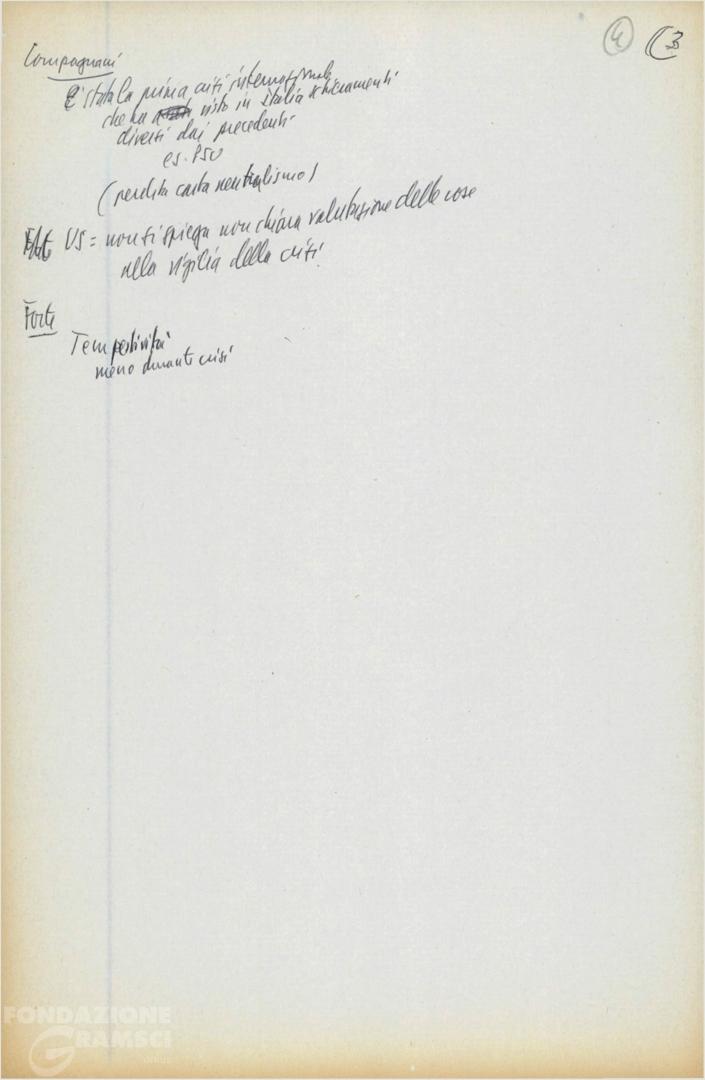 4 (3
Compagnani
E' stata la prima crisi internazionale
che ha visto in Italia schieramenti
diversi dai precedenti
es. PSU
(perdita carta neutralismo)
US = non si spiega non chiara valutazione delle cose
alla vigilia della crisi
Forte
Tempestività
meno durante crisi
FONDAZIONE
GRAMSCI